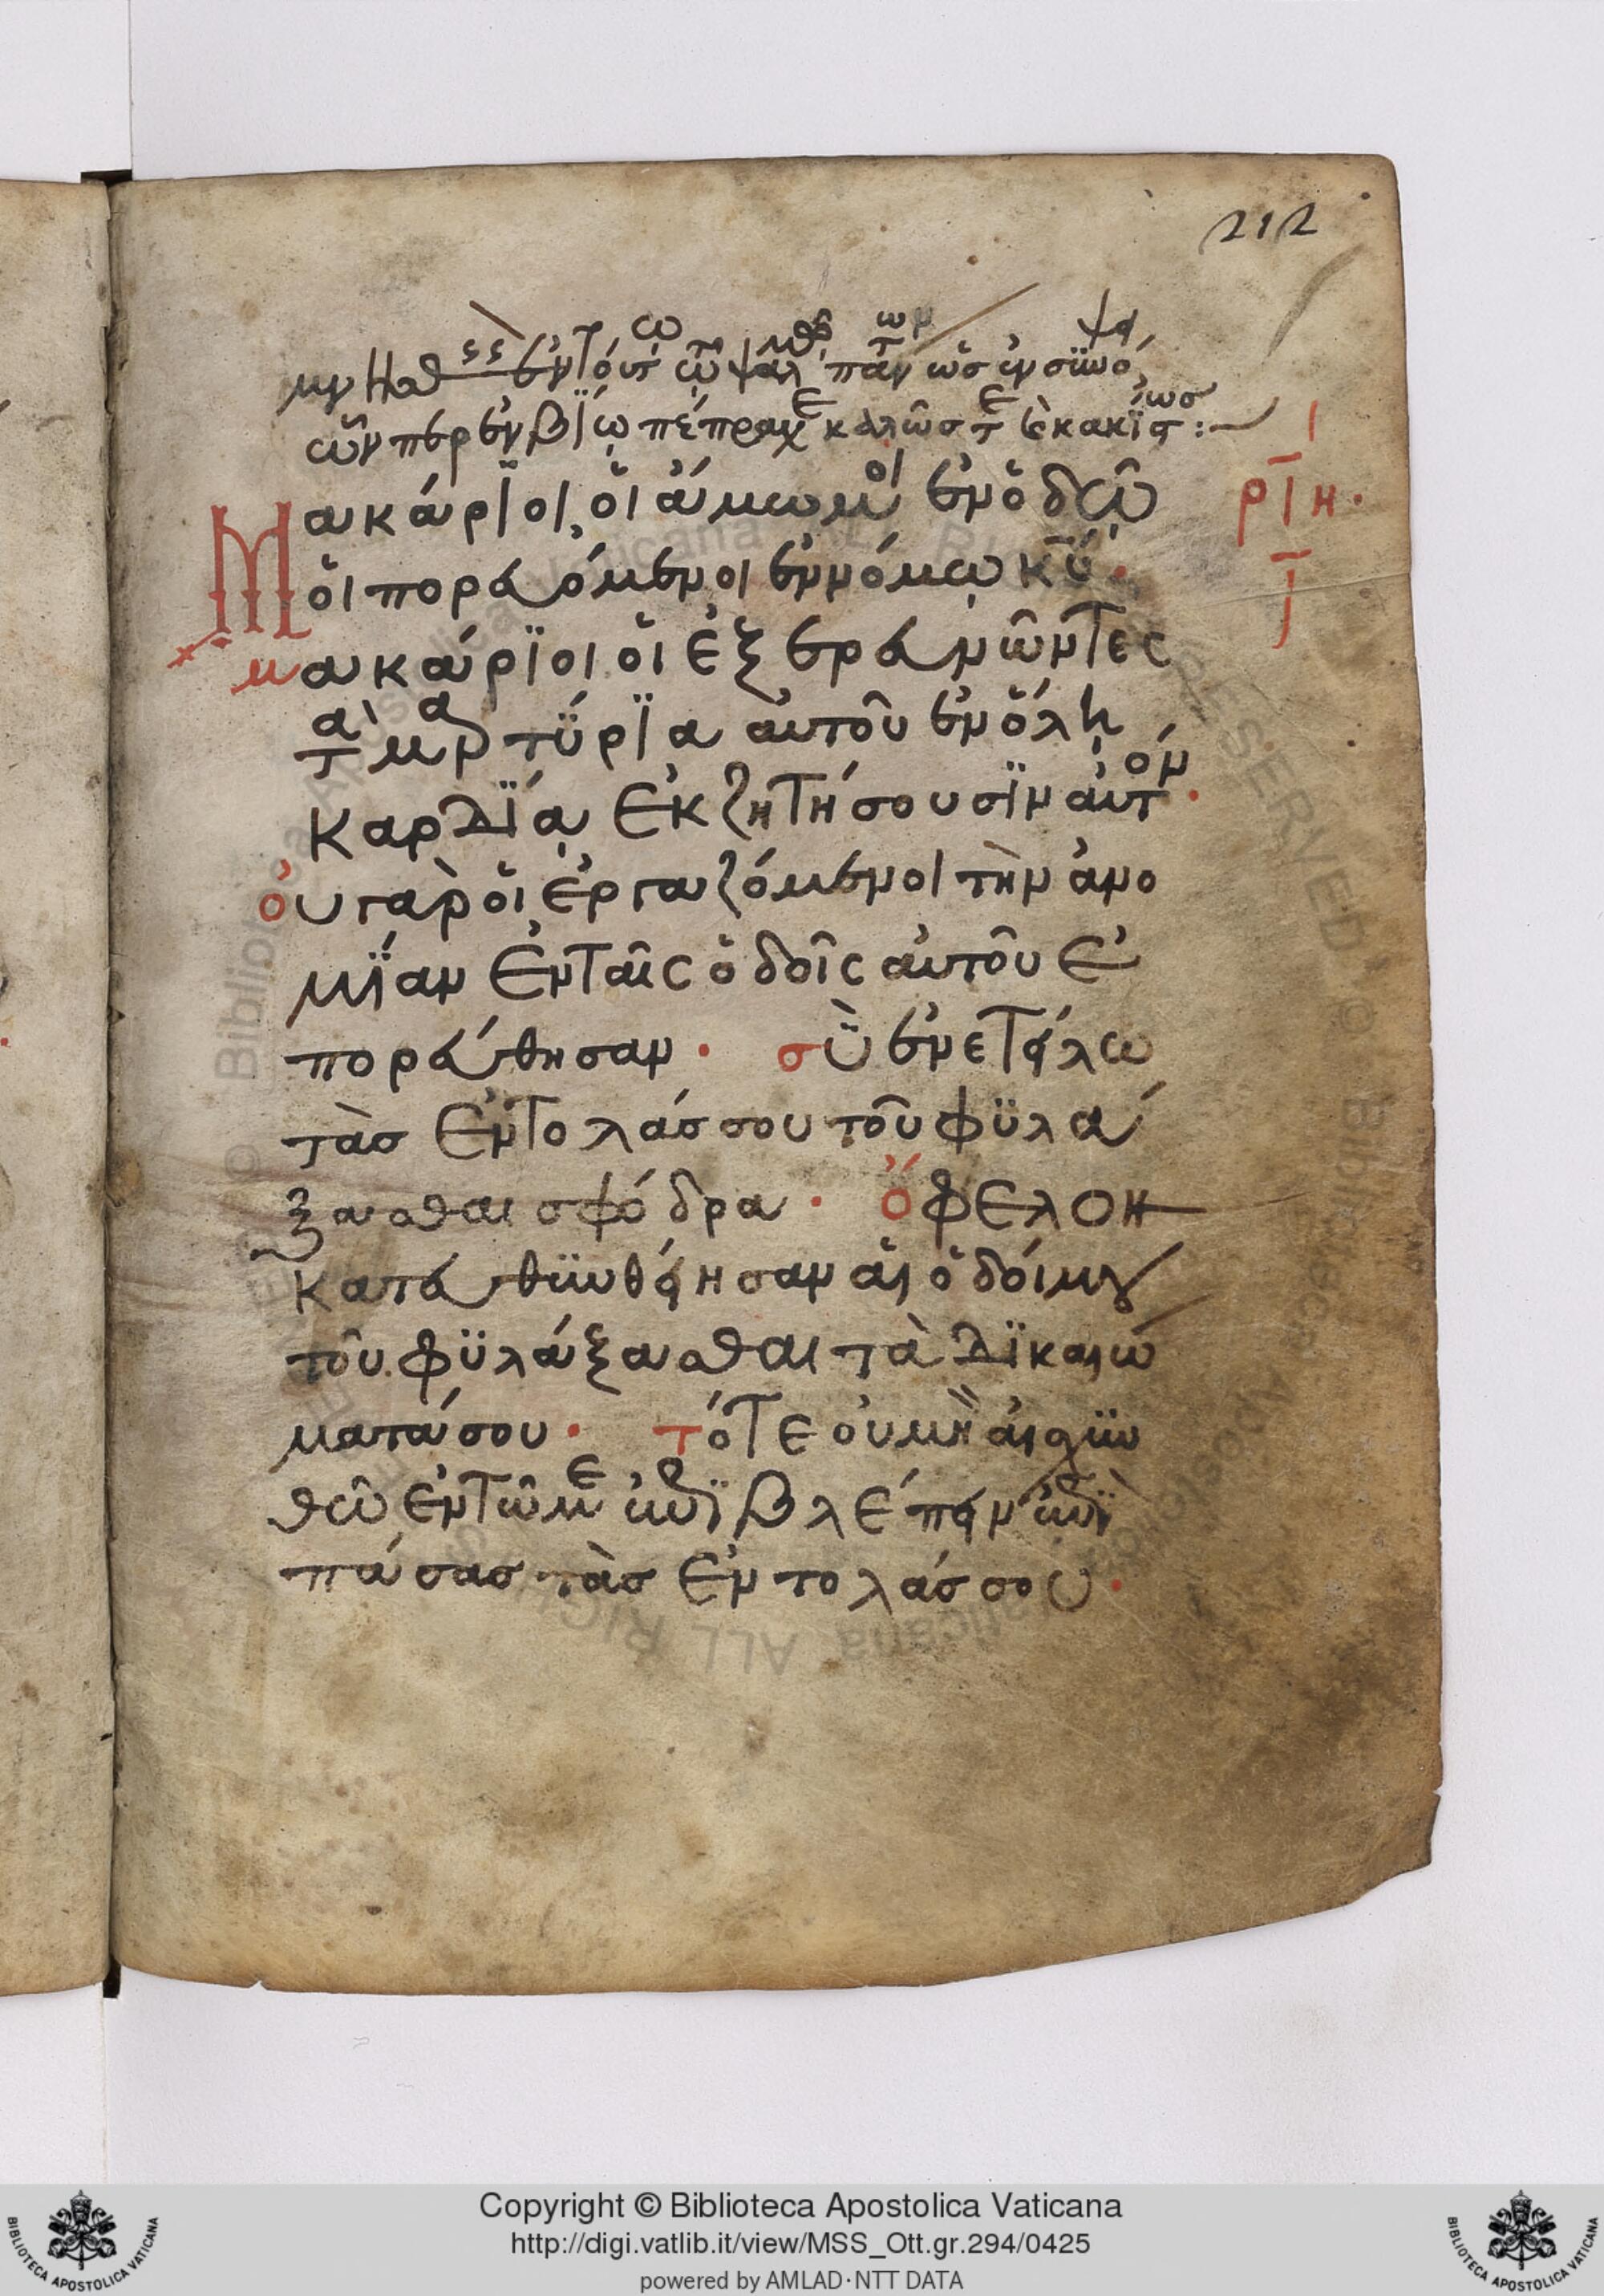 212
μνήσθ ἐν τούτῳ τῷ ψαλμῷ πάντων ὡς ἐν συνό
ὧνπερ ἐν βίῳ πέπραχε καλῶς τε κακίστως:
Μακάρϊοι οἱ ἄμωμοι ἐν ὁδῷ
ρῑη·
οἱ πορευόμενοι ἐν νόμῳ κ̅υ̅·
μακάρϊοι οἱ ἐξερευνῶντες
τὰ μαρτύρϊα αὐτοῦ ἐν ὅλῃ
καρδΐᾳ ἐκζητήσουσϊν αὐτόν·
οὐ γὰρ οἱ ἐργαζόμενοι τὴν ἀνο
μΐαν ἐν ταῖς ὁδοῖς αὐτοῦ ἐ
πορεύθησαν· σὺ ἐνετείλω
τὰσ ἐντολάσ σου τοῦ φϋλά
ξασθαι σφόδρα· ὄφελον
κατευθϋνθείησαν αἱ ὁδοί μου
τοῦ φϋλάξασθαι τὰ δϊκαιώ
ματά σου· τότε οὐ μὴ αἰσχϋν
θῶ ἐν τῶ με ἐπϊβλέπειν ἐπῒ
πάσασ τὰσ ἐντολάσ σου·
Copyright © Biblioteca Apostolica Vaticana
http://digi.vatlib.it/view/MSS_Ott.gr.294/0425
powered by AMLAD·NTT DATA
BIBLIOTECA APOSTOLICA VATICANA
BIBLIOTECA APOSTOLICA VATICANA